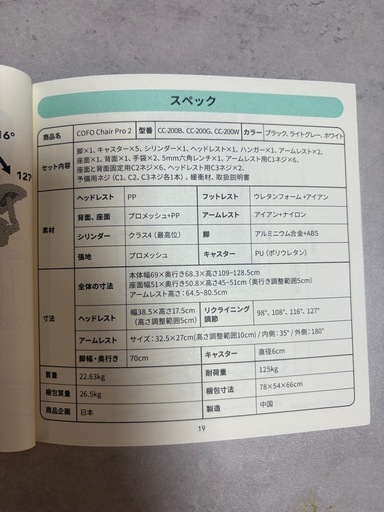 16°
127
スペック
商品名 COFO Chair Pro 2 型番 CC-200B、CC-200G、CC-200W カラー ブラック、ライトグレー、ホワイト
セット内容 脚×1、キャスター×5、シリンダー×1、ヘッドレスト×1、ハンガー×1、アームレスト×2、
座面×1、背面×1、手袋×2、5mm六角レンチ×1、アームレスト用C1ネジ×6、
座面と背面固定用C2ネジ×6、ヘッドレスト用C3ネジ×2、
予備用ネジ (C1、C2、C3ネジ各1本) 、緩衝材、取扱説明書
素材 ヘッドレスト PP フットレスト ウレタンフォーム+アイアン
背面、座面 プロメッシュ+PP アームレスト アイアン+ナイロン
シリンダー クラス4 (最高位) 脚 アルミニウム合金+ABS
張地 プロメッシュ キャスター PU (ポリウレタン)
寸法 全体の寸法 本体幅69×奥行き68.3×高さ109~128.5cm
座面幅51×奥行き50.8×高さ45~51cm (高さ調整範囲5cm)
アームレスト高さ : 64.5~80.5cm
ヘッドレスト 幅38.5×高さ17.5cm
(高さ調整範囲5cm) リクライニング
調節 98°、108°、116°、127°
アームレスト サイズ : 32.5×27cm(高さ調整範囲10cm) / 内側 : 35° / 外側 : 180°
脚幅・奥行き 70cm キャスター 直径6cm
質量 22.63kg 耐荷重 125kg
梱包質量 26.5kg 梱包寸法 78×54×66cm
商品企画 日本 製造 中国
19